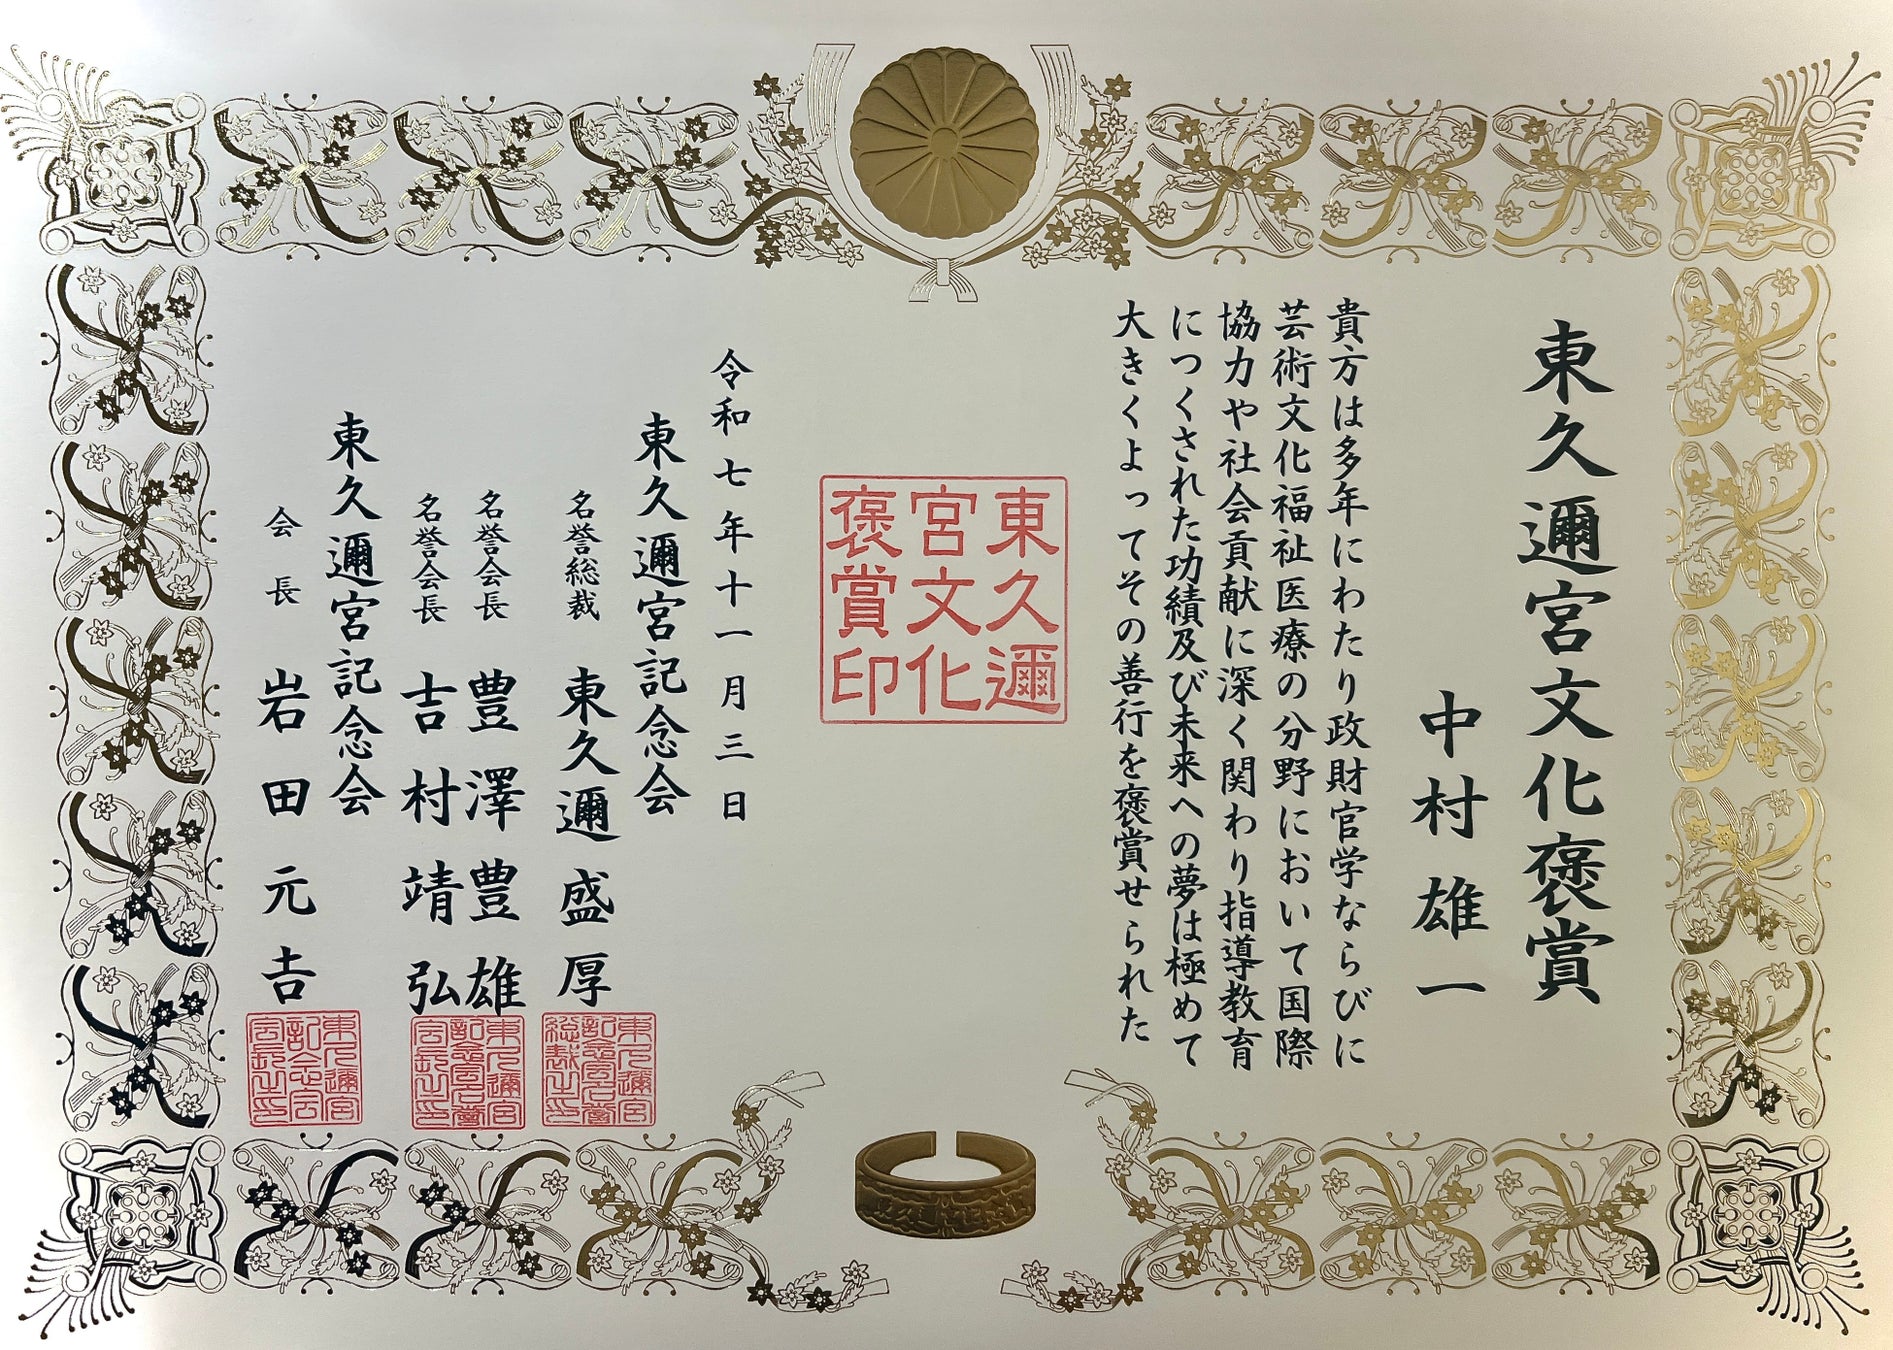 東久邇宮文化褒賞
中村雄一
貴方は多年にわたり政財官学ならびに
芸術文化福祉医療の分野において国際
協力や社会貢献に深く関わり指導教育
につくされた功績及び未来への夢は極めて
大きくよってその善行を褒賞せられた
東久邇
宮文化
褒賞印
令和七年十一月三日
東久邇宮記念会
名誉総裁 東久邇盛厚
名誉会長 豊澤豊雄
名誉会長 吉村靖弘
東久邇宮記念会
会長 岩田元吉